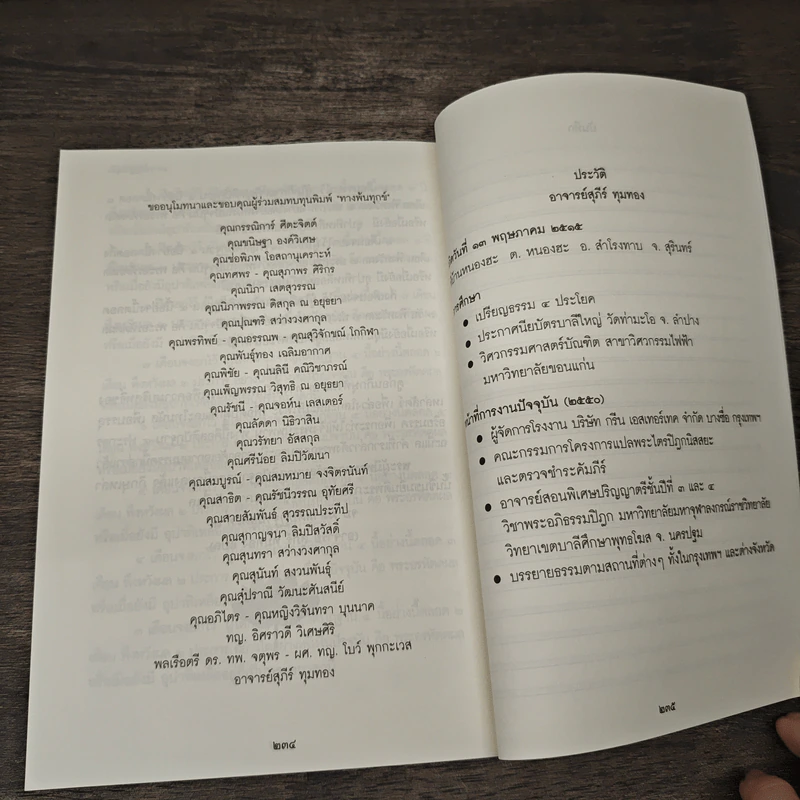 ขออนุโมทนาและขอบคุณผู้ร่วมสมทบทุนพิมพ์ "ทางพ้นทุกข์"
คุณกรรณิการ์ ศีตะจิตต์
คุณขนิษฐา องค์วิเศษ
คุณช่อพิภพ โอสถานุเคราะห์
คุณทศพร - คุณสุภาพร ศิริกร
คุณนิภา เสตสุวรรณ
คุณนิภาพรรณ ดิสกุล ณ อยุธยา
คุณปุณฑริ สว่างวงศากุล
คุณพรทิพย์ - คุณอรรณพ - คุณสุวิจักขณ์ โกกิฬา
คุณพันธุ์ทอง เฉลิมอากาศ
คุณพิชัย - คุณนลินี คณิวิชาภรณ์
คุณเพ็ญพรรณ วิสุทธิ ณ อยุธยา
คุณรัชนี - คุณจอห์น เลสเตอร์
คุณลัดดา นิธิวาสิน
คุณวรัทยา อัสสกุล
คุณศรีน้อย ลิมปิวัฒนา
คุณสมบูรณ์ - คุณสมหมาย จงจิตรนันท์
คุณสาธิต - คุณรัชนีวรรณ อุทัยศรี
คุณสายสัมพันธ์ สุวรรณประทีป
คุณสุกาญจนา ลิมปิสวัสดิ์
คุณสุนทรา สว่างวงศากุล
คุณสุนันท์ สงวนพันธุ์
คุณสุ่ปราณี วัฒนะศันสนีย์
คุณอภิไตร - คุณหญิงวิจันทรา บุนนาค
ทญ. อิศราวดี วิเศษศิริ
พลเรือตรี ดร. ทพ. จตุพร - ผศ. ทญ. โบว์ พุกกะเวส
อาจารย์สุภีร์ ทุมทอง
๒๓๔
ประวัติ
อาจารย์สุภีร์ ทุมทอง
วันที่ ๑๓ พฤษภาคม ๒๕๑๕
บ้านหนองฮะ ต. หนองฮะ อ. สำโรงทาบ จ. สุรินทร์
การศึกษา
● เปรียญธรรม ๔ ประโยค
● ประกาศนียบัตรบาลีใหญ่ วัดท่ามะโอ จ. ลำปาง
● วิศวกรรมศาสตร์บัณฑิต สาขาวิศวกรรมไฟฟ้า
มหาวิทยาลัยขอนแก่น
หน้าที่การงานปัจจุบัน (๒๕๕๐)
● ผู้จัดการโรงงาน บริษัท กรีน เอสเทอร์เทค จำกัด บางซื่อ กรุงเทพฯ
● คณะกรรมการโครงการแปลพระไตรปิฎกนิสสยะ
และตรวจชำระคัมภีร์
● อาจารย์สอนพิเศษปริญญาตรีชั้นปีที่ ๓ และ ๔
วิชาพระอภิธรรมปิฎก มหาวิทยาลัยมหาจุฬาลงกรณ์ราชวิทยาลัย
วิทยาเขตบาลีศึกษาพุทธโฆส จ. นครปฐม
● บรรยายธรรมตามสถานที่ต่างๆ ทั้งในกรุงเทพฯ และต่างจังหวัด
๒๓๕